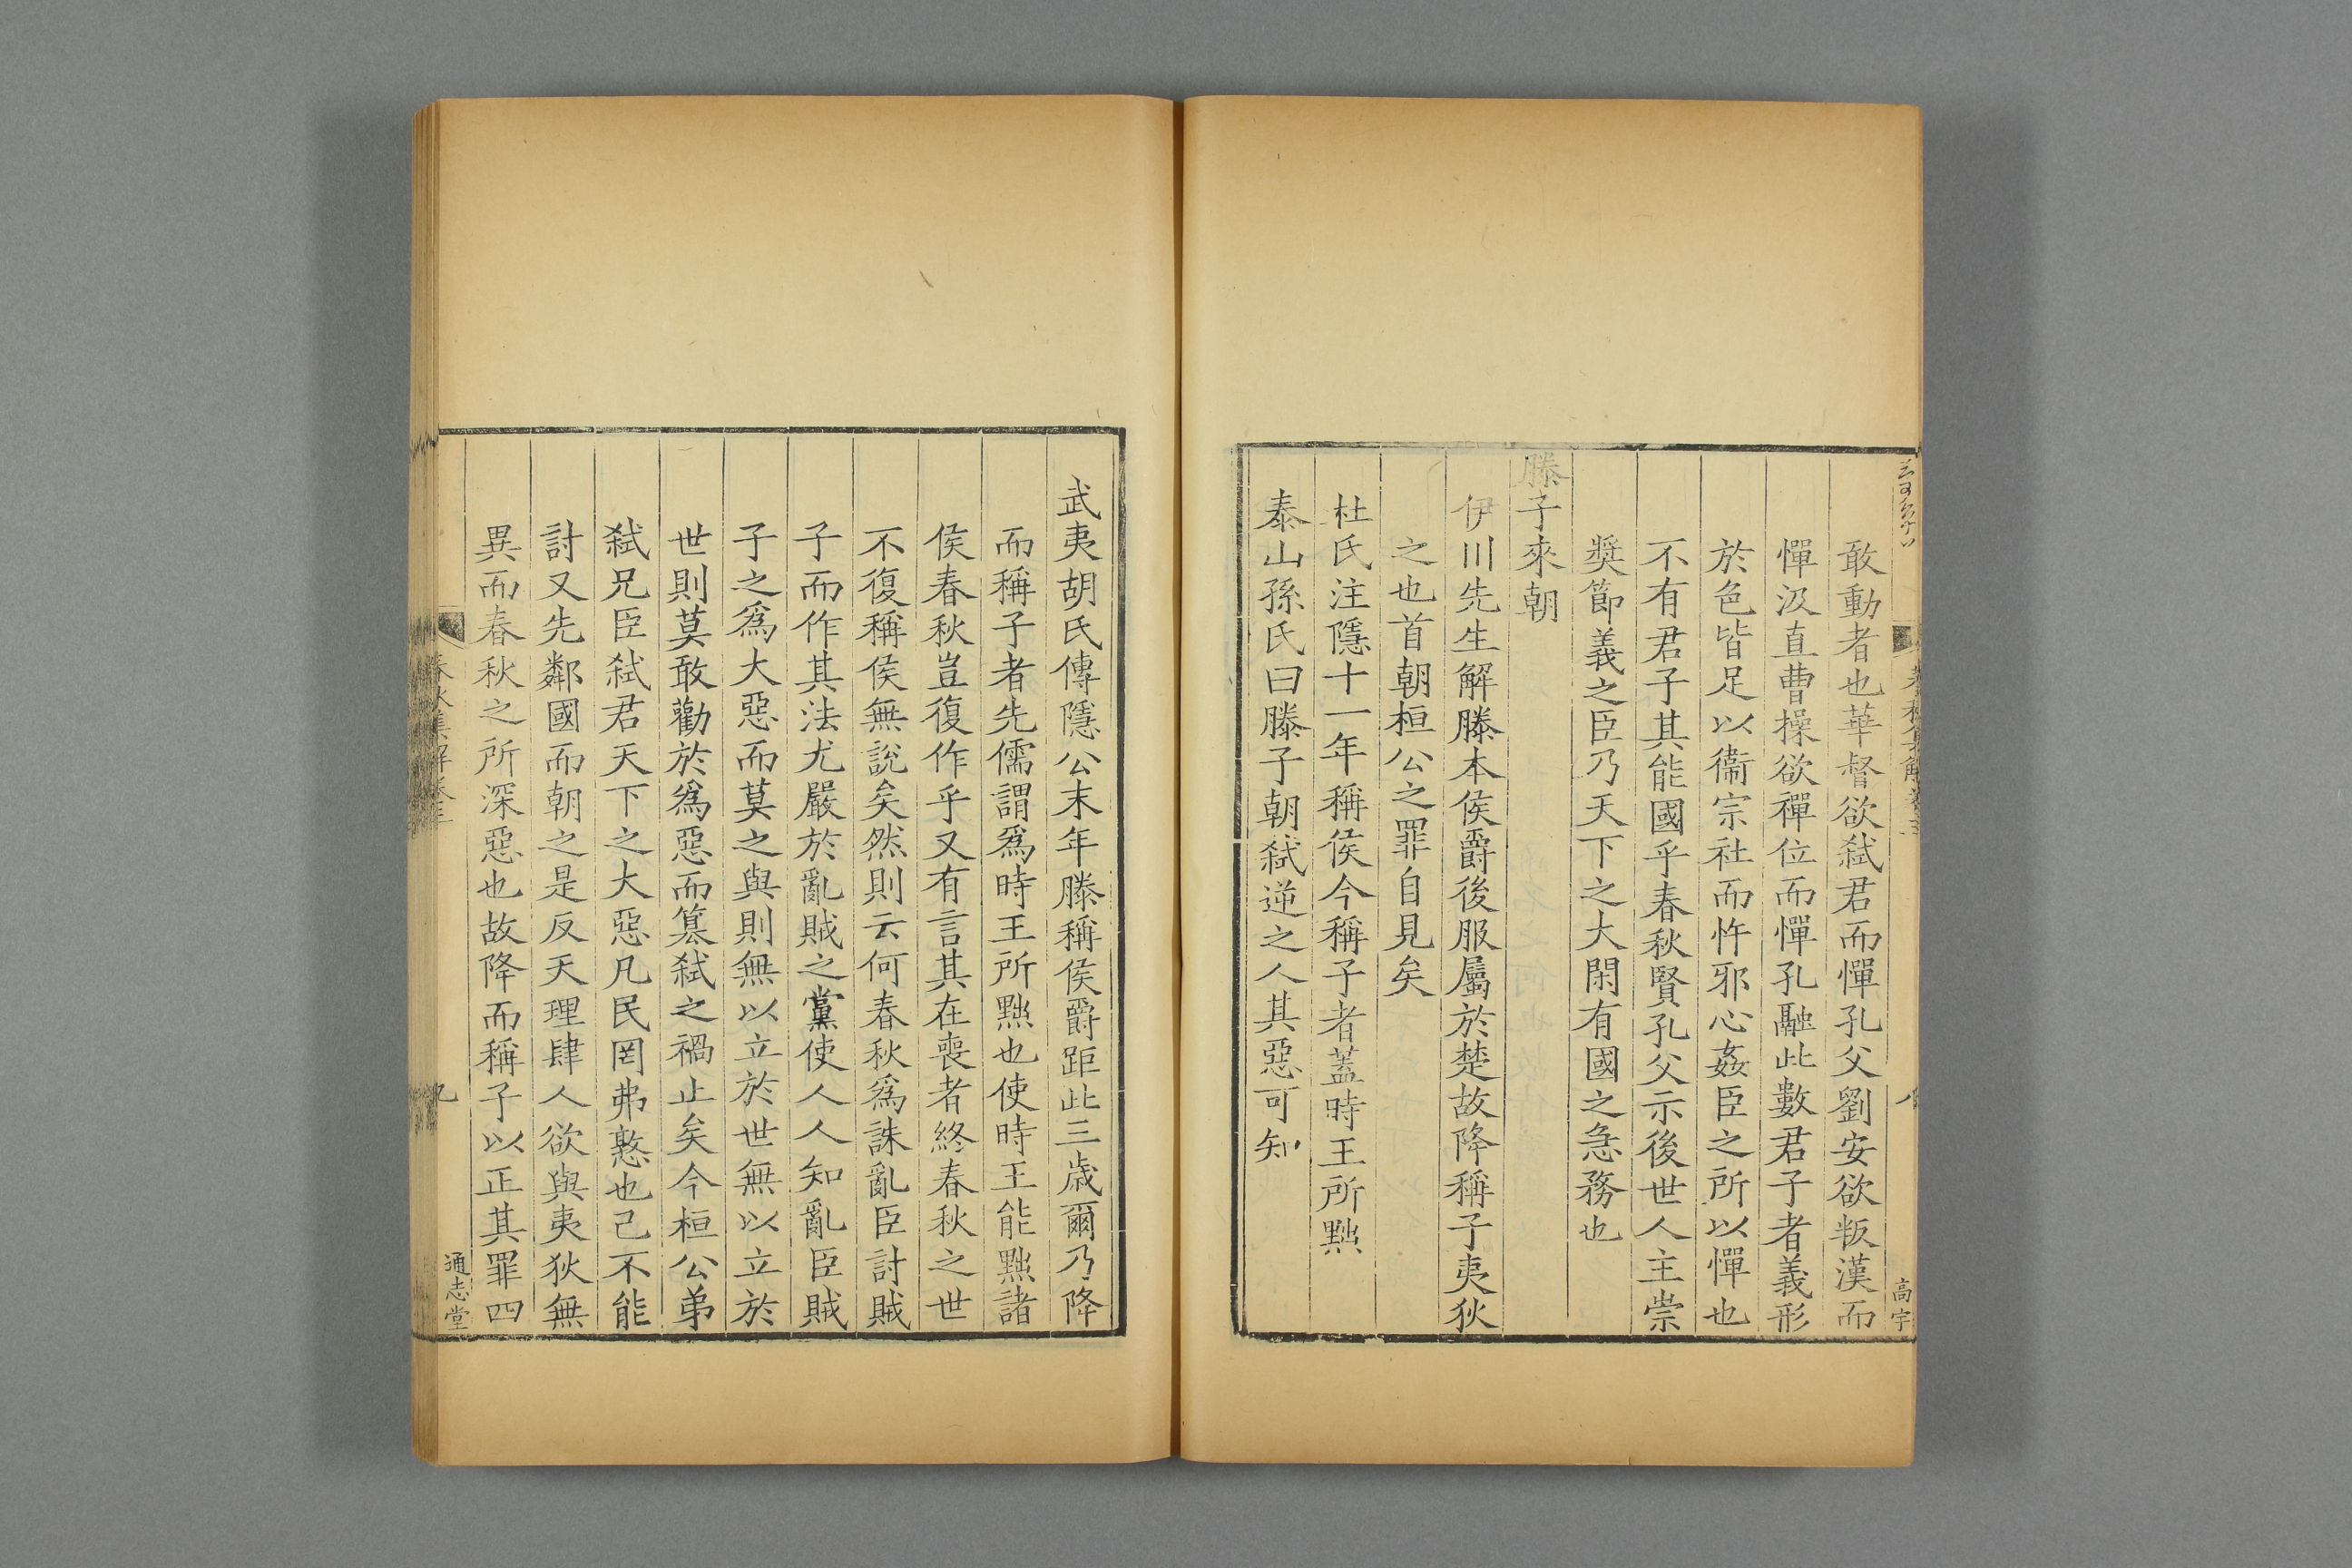 敢動者也華督欲弑君而憚孔父劉安欲叛漢而
憚汲直曹操欲禪位而憚孔融此數君子者義形
於色皆足以衞宗社而忤邪心姦臣之所以憚也
不有君子其能國乎春秋賢孔父示後世人主崇
奬節義之臣乃天下之大閑有國之急務也
滕子來朝
伊川先生解滕本侯爵後服屬於楚故降稱子夷狄
之也首朝桓公之罪自見矣
杜氏注隱十一年稱侯今稱子者蓋時王所黜
泰山孫氏曰滕子朝弑逆之人其惡可知
高宇
武夷胡氏傳隱公末年滕稱侯爵距此三歳爾乃降
而稱子者先儒謂爲時王所黜也使時王能黜諸
侯春秋豈復作乎又有言其在喪者終春秋之世
不復稱侯無說矣然則云何春秋爲誅亂臣討賊
子而作其法尤嚴於亂賊之黨使人人知亂臣賊
子之爲大惡而莫之與則無以立於世無以立於
世則莫敢勸於爲惡而簒弑之禍止矣今桓公弟
弑兄臣弑君天下之大惡凡民罔弗憝也己不能
討又先鄰國而朝之是反天理肆人欲與夷狄無
異而春秋之所深惡也故降而稱子以正其罪四
春秋集解卷三
九
通志堂